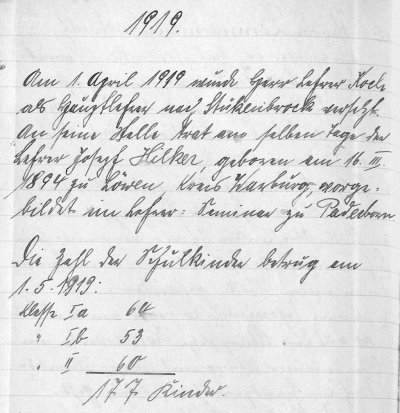 1919.
Am 1. April 1919 wurde Herr Lehrer Koch
als Hauptlehrer nach Stukenbrock versetzt.
An seine Stelle trat am selben Tage der
Lehrer Josef Hilker, geboren am 16. III.
1894 zu Löwen, Kreis Warburg, vorge-
bildet im Lehrer-Seminar zu Paderborn.
Die Zahl der Schulkinder betrug am
1. 5. 1919:
Klasse Ia 64
" Ib 53
" II 60
177 Kinder.